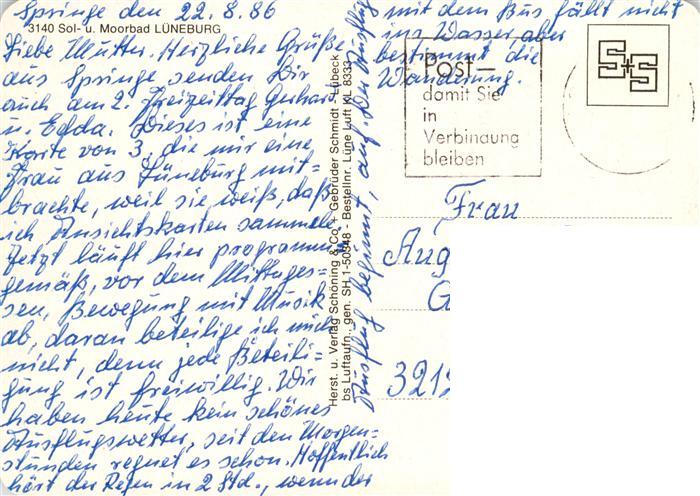 Springe den 22.8.86
3140 Sol- u. Moorbad LÜNEBURG
Liebe Mutter. Herzliche Grüße
aus Springe senden Dir
auch am 2. Freizeittag Gerhard
u. Edda. Dieses ist eine
Karte von 3, die mir eine
Frau aus Lüneburg mit-
brachte, weil sie weiß, daß
ich Ansichtskarten sammele
Jetzt läuft hier programm
gemäß, vor dem Mittages-
sen, Bewegung mit Musik
ab, daran beteilige ich mich
nicht, denn jede Beteili-
gung ist freiwillig. Wir
haben heute kein schönes
Ausflugswetter, seit den Morgen-
stunden regnet es schon. Hoffentlich
hört der Regen in 2 Std., wenn der
Ausflug beginnt, auf. Der Ausflug
mit dem Bus fällt nicht
ins Wasser, aber
bestimmt die
Wanderung.
Herst. u. Verlag Schöning & Co + Gebrüder Schmidt · Lübeck
bs Luftaufn. gen. SH 1-50348 - Bestellnr. Lüne Luft KL 8333
Post—
damit Sie
in
Verbindung
bleiben
S+S
Frau
Aug
G
3215